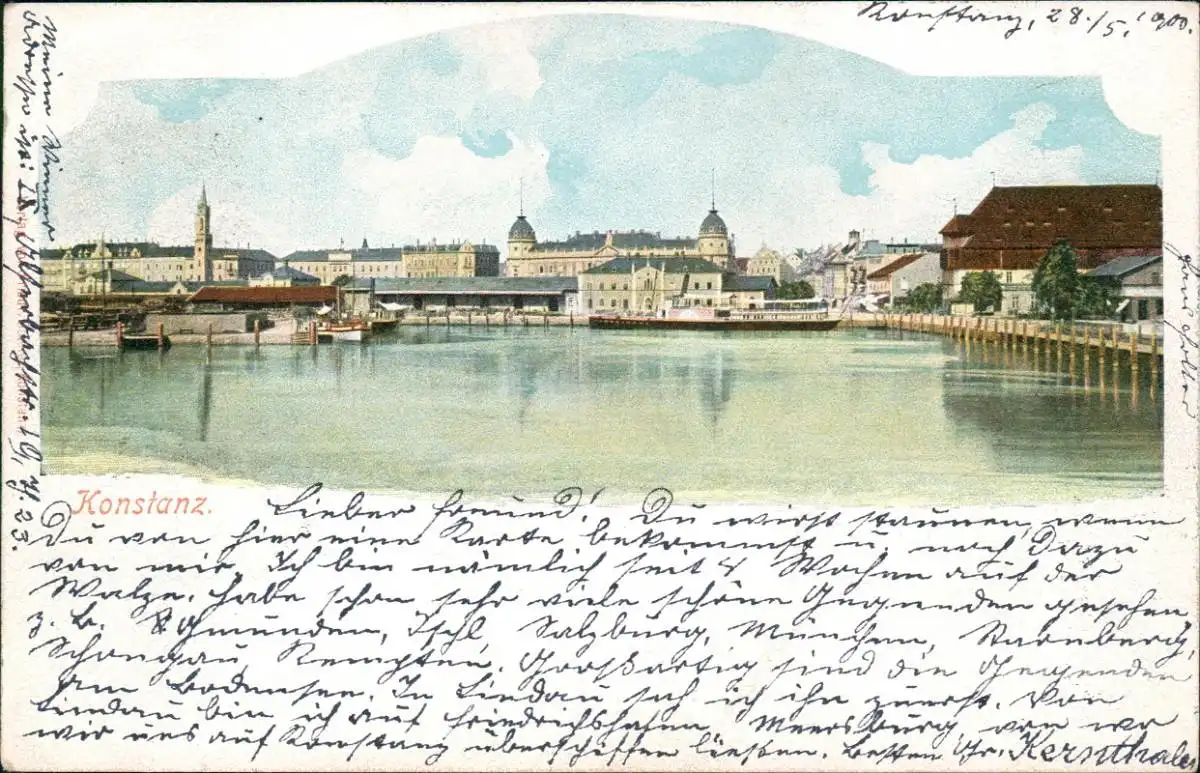 Konstanz, 28./5. 1900.
Konstanz.
Lieber Freund! Du wirst staunen, wenn
Du von hier eine Karte bekommst u. noch dazu
von mir. Ich bin nämlich seit 4 Wochen auf der
Walze. Habe schon sehr viele schöne Gegenden gesehen,
z. B. Gmunden, Ischl, Salzburg, München, Starnberg,
Schongau, Kempten. Großartig sind die Gegenden
am Bodensee. In Lindau sah ich ihn zuerst. Von
Lindau bin ich auf Friedrichshafen, Meersburg, von wo
wir uns auf Konstanz überschiffen ließen. Besten Gr. Kernthaler
Meine Wiener
Adresse ist: